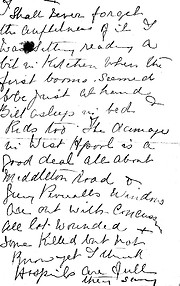 I shall never forget
the awfulness of it I
was sitting reading a
bit in Kitchen when the
first booms. Seemed
to be just at hand &
Bill asleep in bed
Kids too The damage
in West Hpool is a
good deal all about
Middleton Road &
Windows
are out with Concussion
a lot wounded +
some killed but not
know yet I think
Hospitals are full
they say